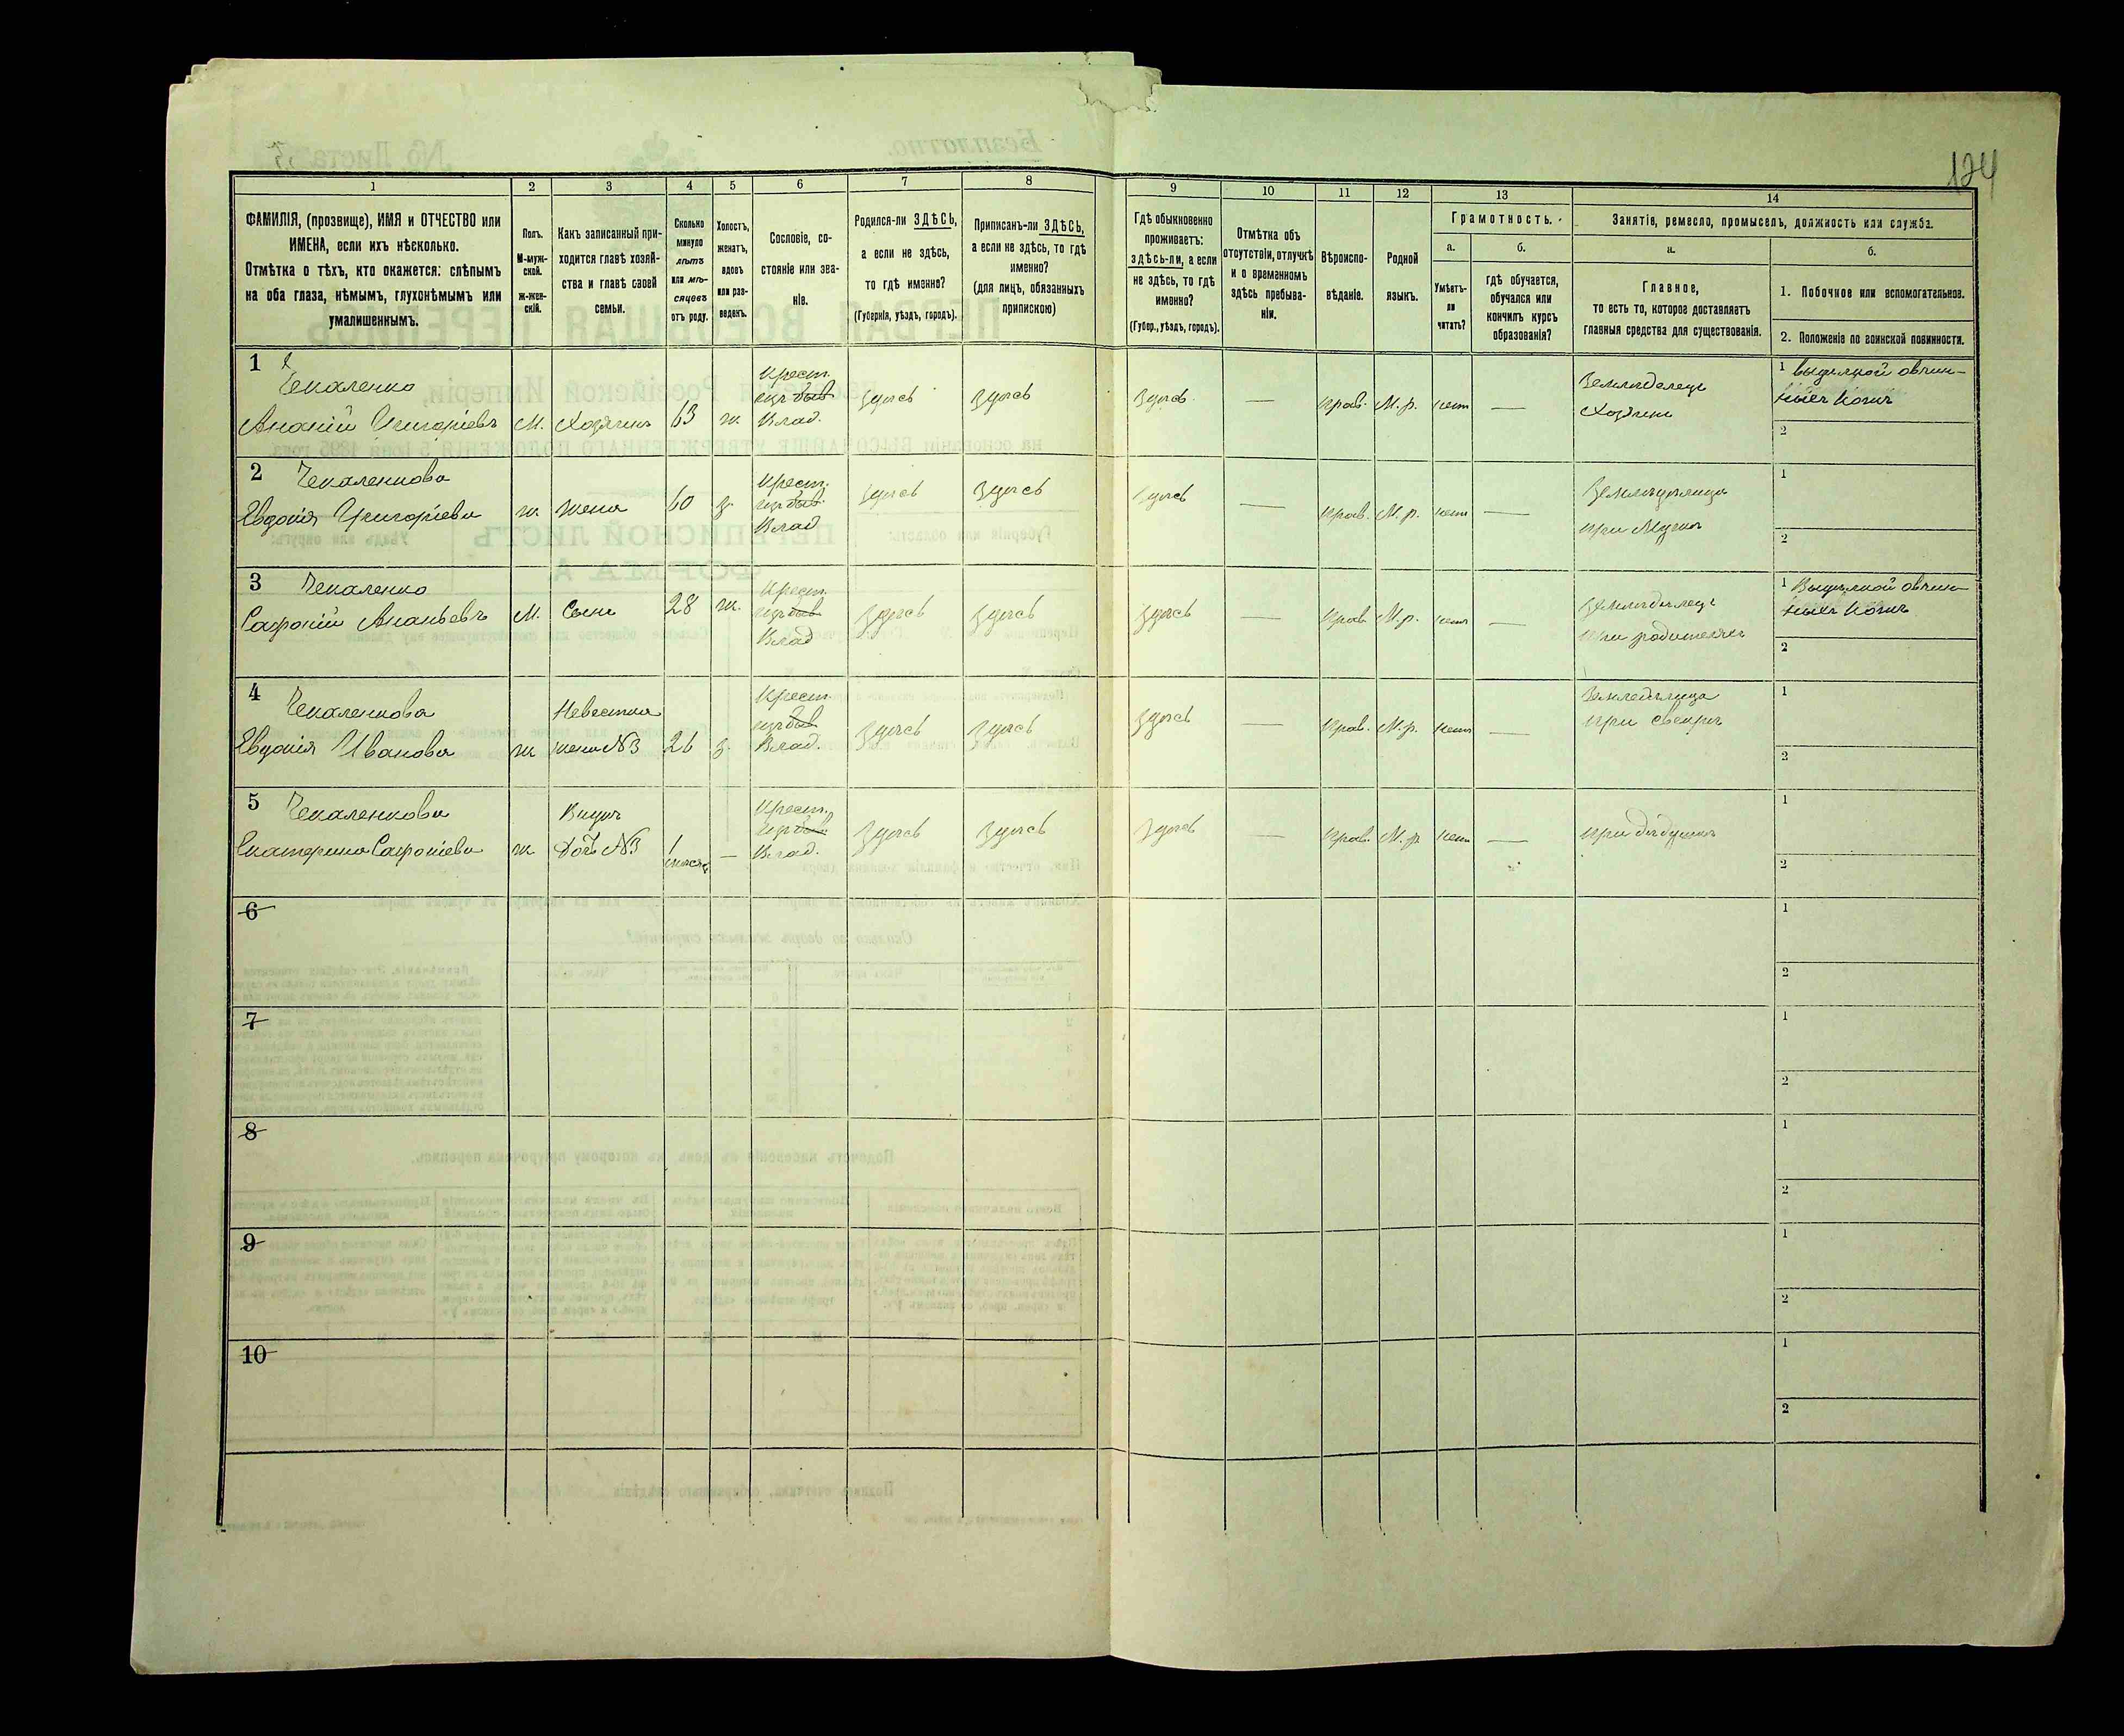 124
1 2 3 4 5 6 7 8 9 10 11 12 13 14
ФАМИЛІЯ, (прозвище), ИМЯ и ОТЧЕСТВО или
ИМЕНА, если ихъ нѣсколько.
Отмѣтка о тѣхъ, кто окажется: слѣпымъ
на оба глаза, нѣмымъ, глухонѣмымъ или
умалишеннымъ.
Полъ.
М-муж-
ской.
ж-жен-
скій.
Какъ записанный при-
ходится главѣ хозяй-
ства и главѣ своей
семьи.
Сколько
минуло
лѣтъ
или мѣ-
сяцевъ
отъ роду.
Холостъ,
женатъ,
вдовъ
или раз-
веденъ.
Сословіе, со-
стояніе или зва-
ніе.
Родился-ли ЗДѢСЬ,
а если не здѣсь,
то гдѣ именно?
(Губернія, уѣздъ, городъ).
Приписанъ-ли ЗДѢСЬ,
а если не здѣсь, то гдѣ
именно?
(для лицъ, обязанныхъ
припискою)
Гдѣ обыкновенно
проживаетъ:
здѣсь-ли, а если
не здѣсь, то гдѣ
именно?
(Губер., уѣздъ, городъ).
Отмѣтка объ
отсутствіи, отлучкѣ
и о временномъ
здѣсь пребыва-
ніи.
Вѣроиспо-
вѣданіе.
Родной
языкъ.
Грамотность.
а.
Умѣетъ-
ли
читать?
б.
гдѣ обучается,
обучался или
кончилъ курсъ
образованія?
Занятіе, ремесло, промыселъ, должность или служба.
а.
Главное,
то есть то, которое доставляетъ
главныя средства для существованія.
б.
1. Побочное или вспомогательное.
2. Положеніе по воинской повинности.
1
Чекаленко
Ананій Григоріевъ
М.
Хозяинъ
63
ж.
Крест.
изъ быв
Влад.
Здѣсь
Здѣсь
Здѣсь
—
Прав.
М. р.
нет
—
Земледелецъ
Хозяинъ
1 Выделкой овчин-
ныхъ кожъ
2
2
Чекаленкова
Евдокія Григоріева
ж
Жена
60
з.
Крест.
изъ быв.
Влад
Здѣсь
Здѣсь
Здѣсь
—
Прав.
М. р.
нет
—
Земледѣлица
при Мужѣ
1
2
3
Чекаленко
Сафоній Ананьевъ
М.
Сынъ
28
ж.
Крест.
изъ быв
Влад
Здѣсь
Здѣсь
Здѣсь
—
Прав.
М. р.
нет
—
Земледѣлецъ
при родителяхъ
1 Выделкой овчин-
ныхъ кожъ
2
4
Чекаленкова
Евдокія Иванова
ж
Невестка
жена №3
26
з.
Крест.
изъ быв
Влад.
Здѣсь
Здѣсь
Здѣсь
—
Прав.
М. р.
нет
—
Земледѣлица
при свекрѣ
1
2
5
Чекаленкова
Екатерина Сафоніева
ж
Внука
Дочь №3
1
месяц
—
Крест.
изъ быв.
Влад.
Здѣсь
Здѣсь
Здѣсь
—
Прав.
М. р.
нет
—
при дѣдушкѣ
1
2
6
1
2
7
1
2
8
1
2
9
1
2
10
1
2